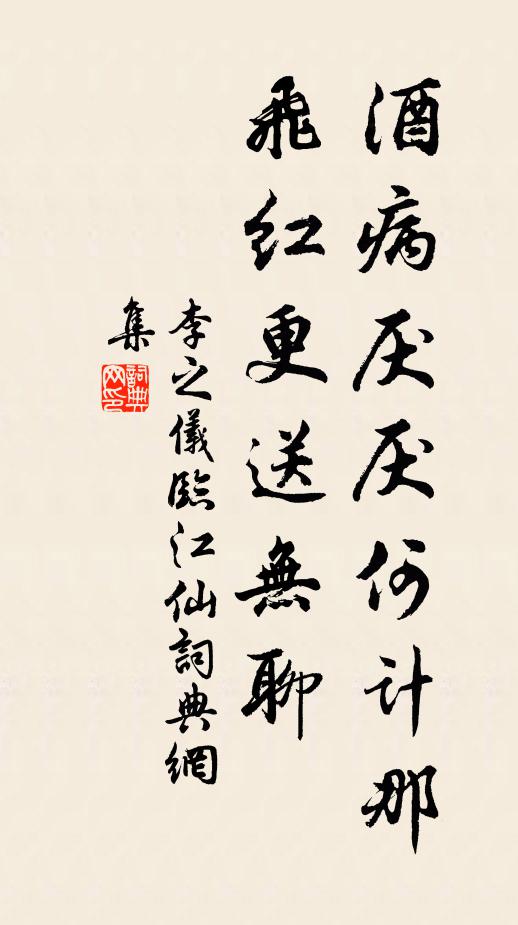 酒病厌厌何计那
飛红更送無聊
李之儀臨江仙詞典網
集
詞典網印